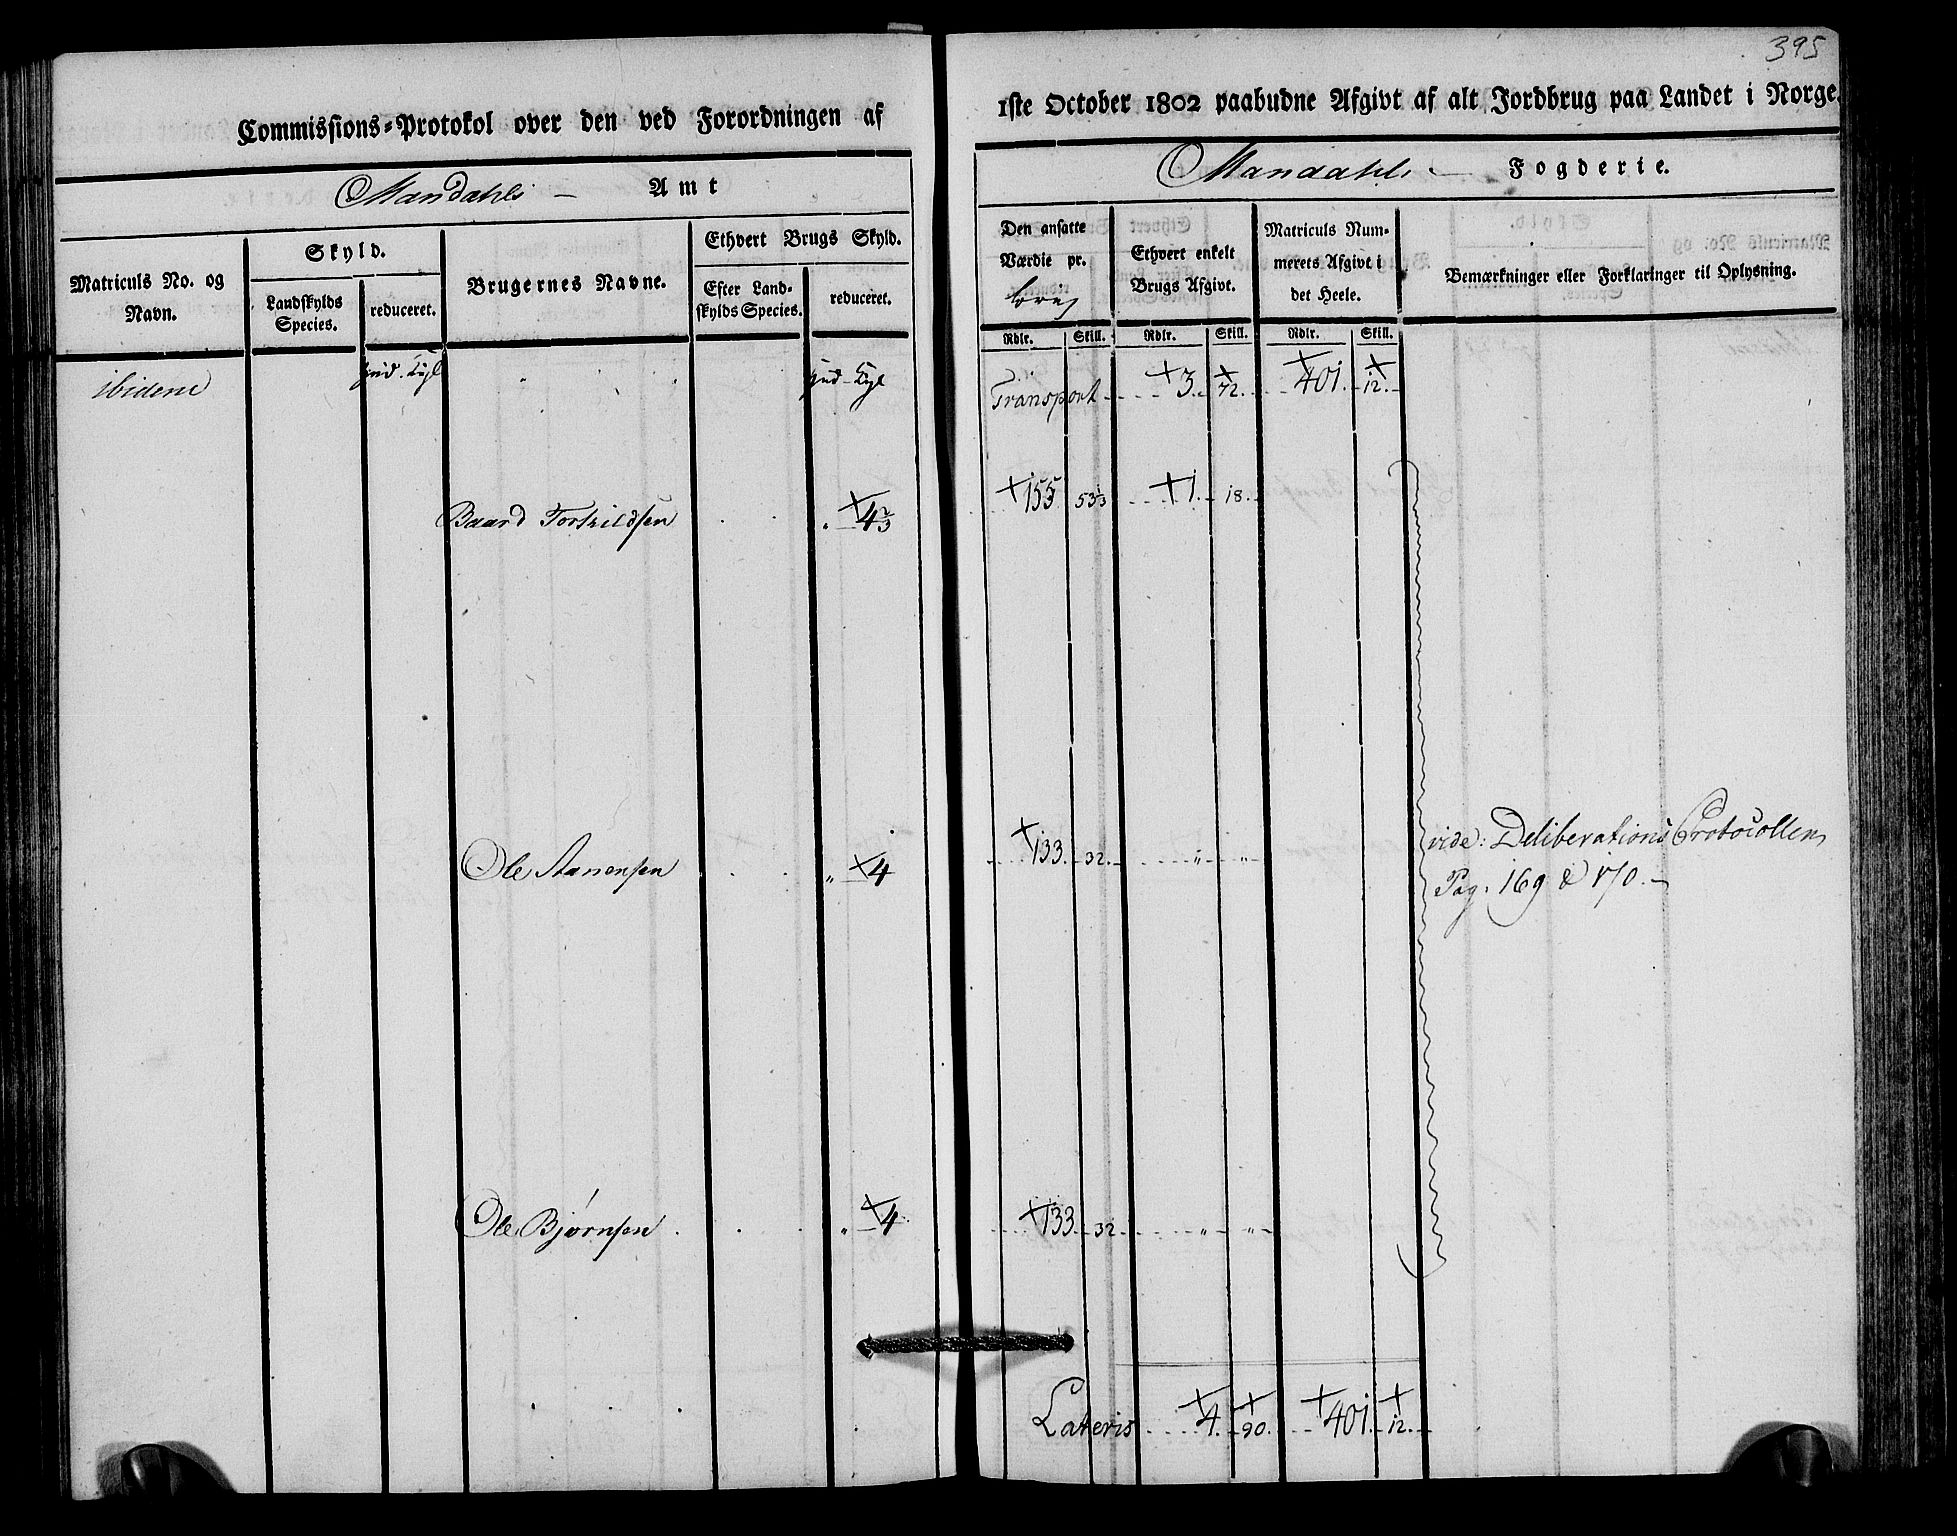 395
Commissions-Protokol over den ved Forordningen af
1ste October 1802 paabudne Afgivt af alt Jordbrug paa Landet i Norge.
Mandahls — Amt
Mandahls — Fogderie.
Matriculs No. og Navn.
Skyld.
Landskylds Species.
reduceret.
Brugernes Navne.
Ethvert Brugs Skyld.
Efter Landskylds Species.
reduceret.
Den ansatte Værdie pr.
Ethvert enkelt Brugs Afgivt.
Matriculs Nummerets Afgivt i det Heele.
Bemærkninger eller Forklaringer til Oplysning.
Rdlr. Skill. Rdlr. Skill. Rdlr. Skill.
ibidem
Transport 3. 72. 401. 12.
Baard Torkildsen " 4 2/3 155 53 1/3 1. 18.
Ole Aanensen " 4 133. 32. " "
vide: Deliberations Protocollen
Pag. 169 & 170. —
Ole Bjørnsen " 4 133. 32. " "
Lateris 4. 90. 401. 12.